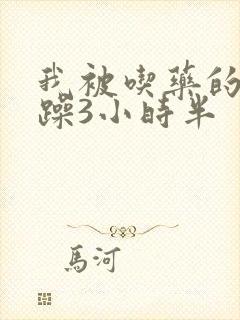 我被喫藥的
躁3小時半
馬河